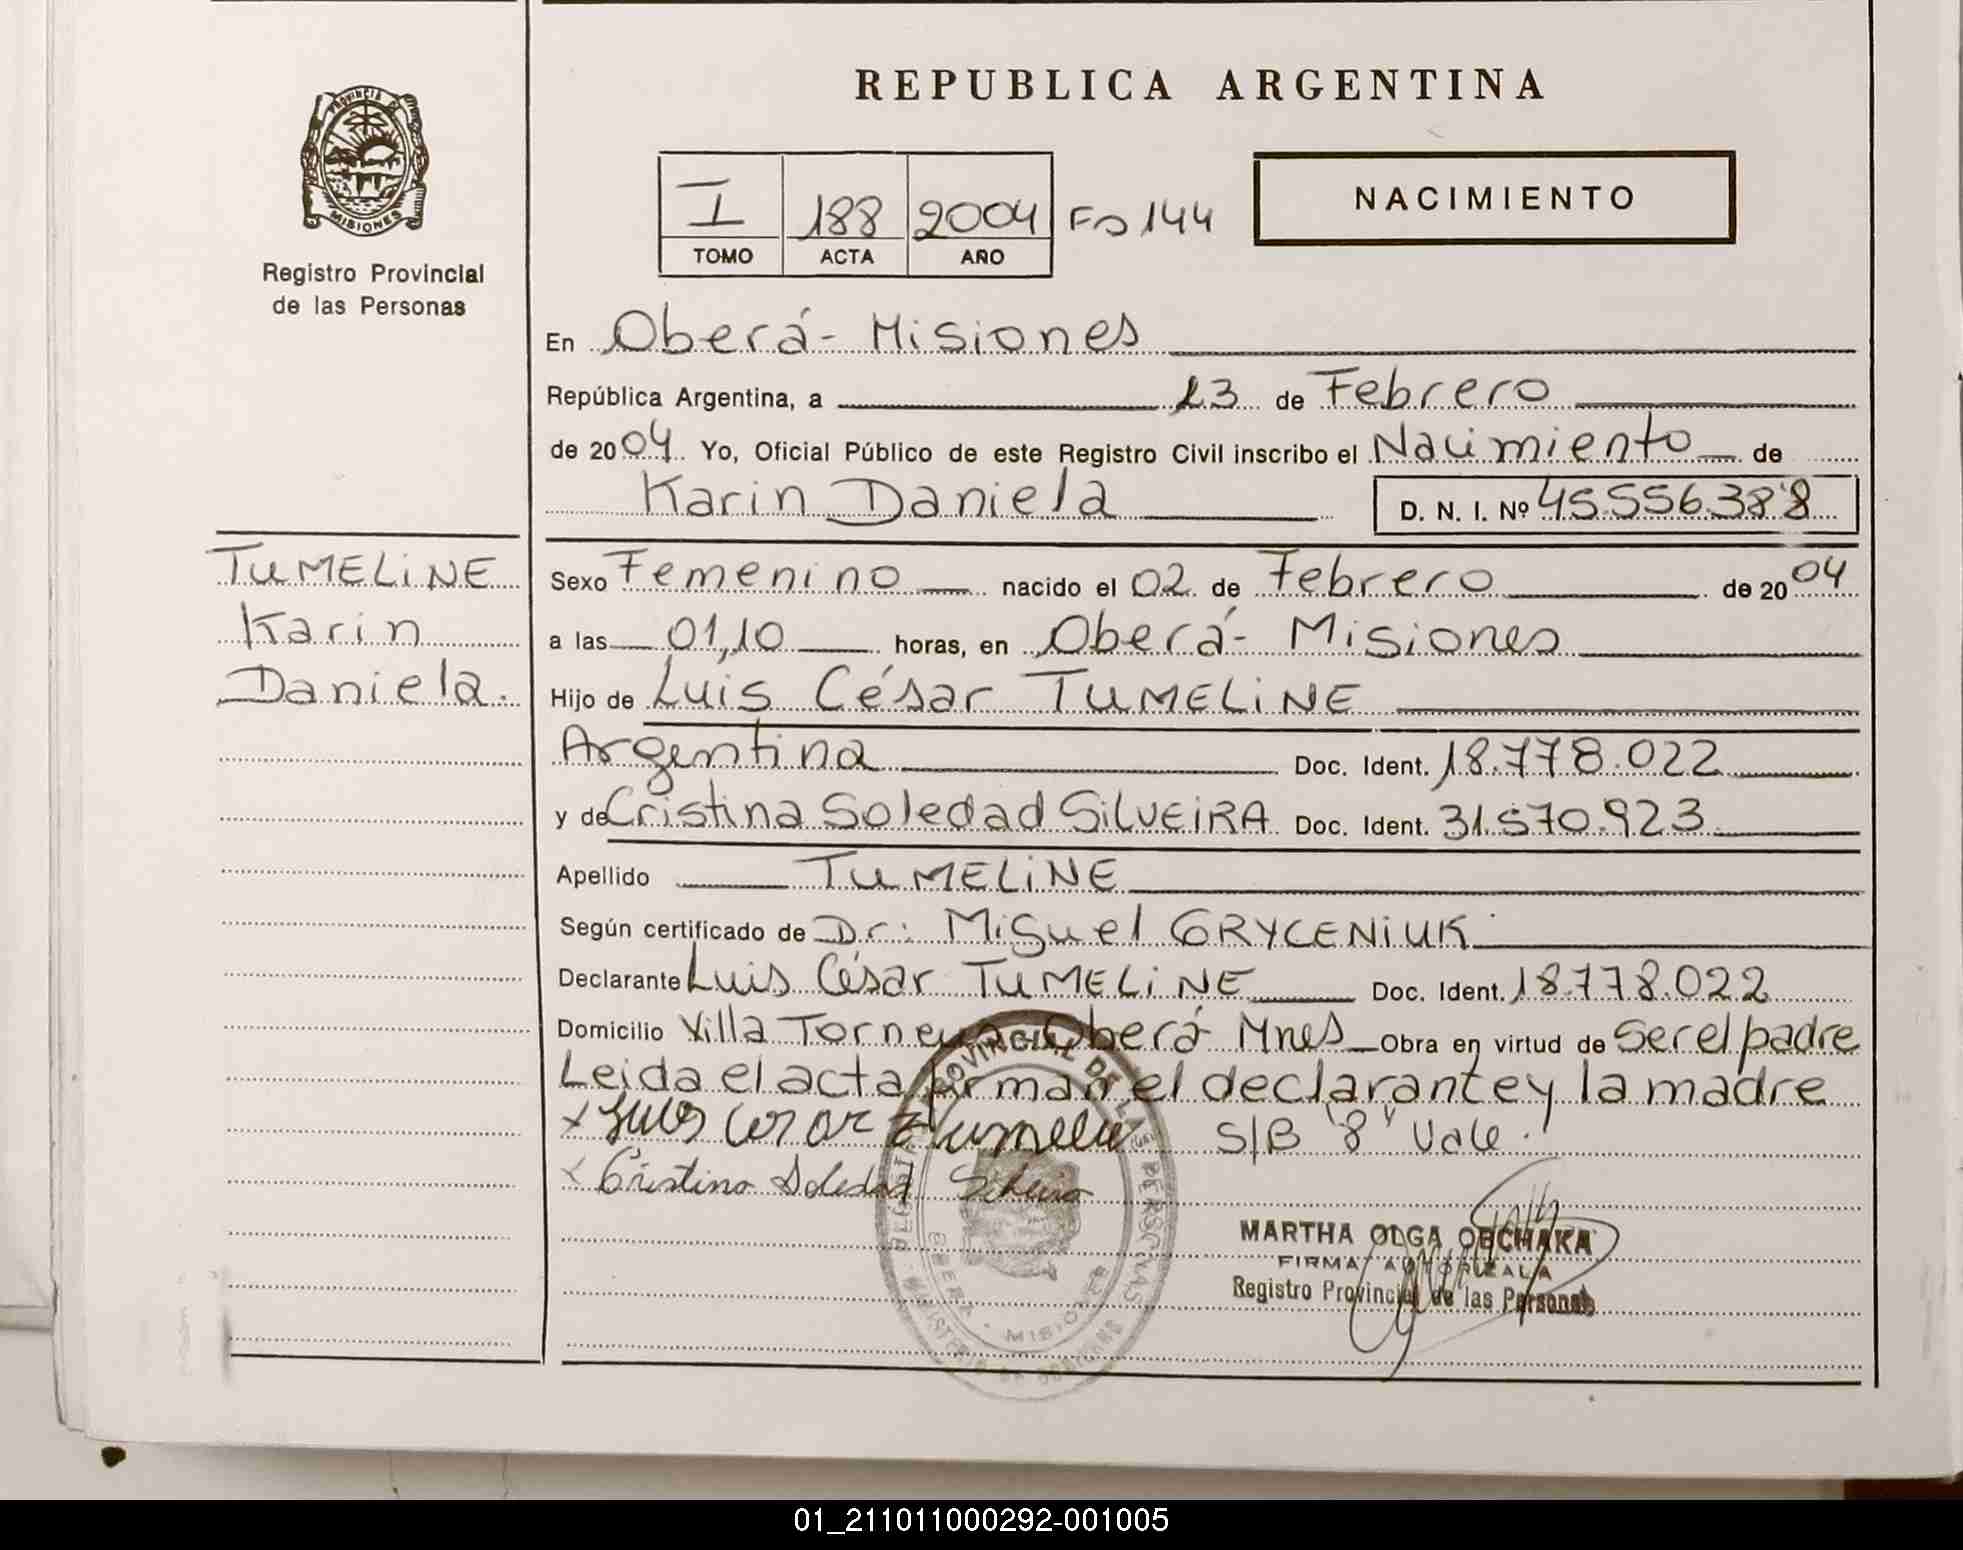 REPUBLICA ARGENTINA
PROVINCIA DE
MISIONES
Registro Provincial
de las Personas
I 188 2004 Fo 144
TOMO ACTA AÑO
NACIMIENTO
En Oberá - Misiones
República Argentina, a 13 de Febrero
de 2004 Yo, Oficial Público de este Registro Civil inscribo el Nacimiento de
Karin Daniela D. N. I. Nº 45.556.388
TUMELINE
Karin
Daniela.
Sexo Femenino nacido el 02 de Febrero de 2004
a las 01,10 horas, en Oberá - Misiones
Hijo de Luis César TUMELINE
Argentina Doc. Ident. 18.778.022
y de Cristina Soledad SILVEIRA Doc. Ident. 31.570.923
Apellido TUMELINE
Según certificado de Dr: Miguel GRYCENIUK
Declarante Luis César TUMELINE Doc. Ident. 18.778.022
Domicilio Villa Oberá Mnes Obra en virtud de ser el padre
Leida el acta firman el declarante y la madre
S/B "8" Vale.
x Cristina Soledad Silveira
MARTHA OLGA OBCHAKA
FIRMA AUTORIZADA
Registro Provincial de las Personas
01_211011000292-001005